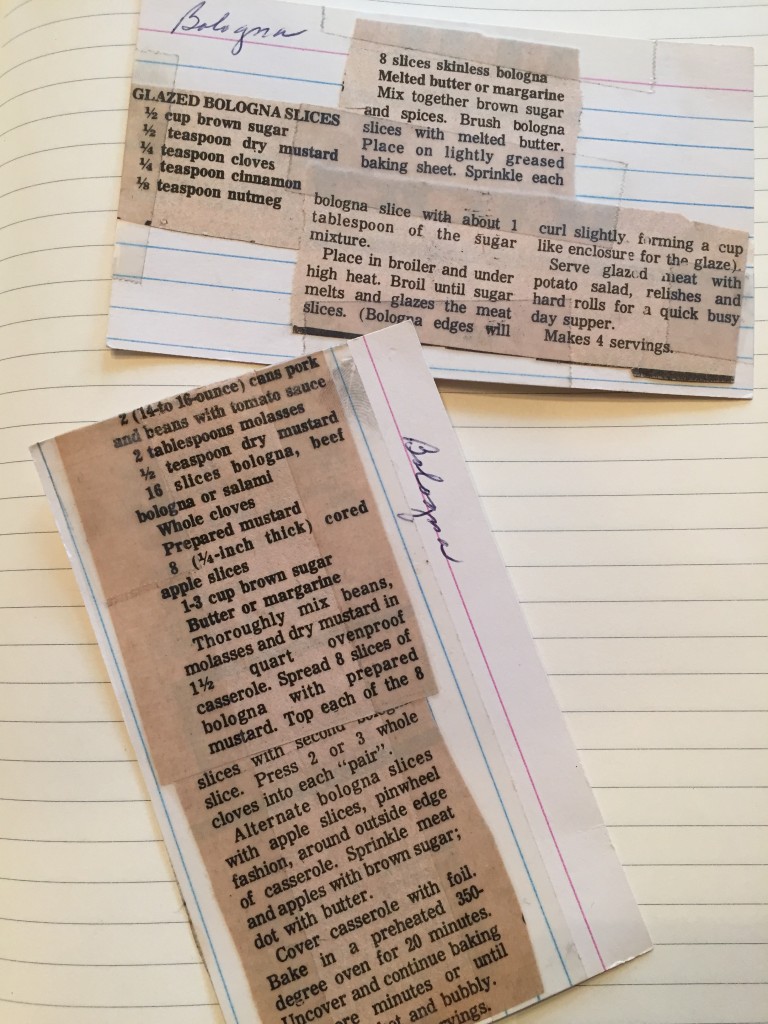 Bologna
GLAZED BOLOGNA SLICES
½ cup brown sugar
½ teaspoon dry mustard
¼ teaspoon cloves
¼ teaspoon cinnamon
⅛ teaspoon nutmeg
8 slices skinless bologna
Melted butter or margarine
Mix together brown sugar
and spices. Brush bologna
slices with melted butter.
Place on lightly greased
baking sheet. Sprinkle each
bologna slice with about 1
tablespoon of the sugar
mixture.
Place in broiler and under
high heat. Broil until sugar
melts and glazes the meat
slices. (Bologna edges will
curl slightly forming a cup
like enclosure for the glaze).
Serve glazed meat with
potato salad, relishes and
hard rolls for a quick busy
day supper.
Makes 4 servings.
Bologna
2 (14-to 16-ounce) cans pork
and beans with tomato sauce
2 tablespoons molasses
½ teaspoon dry mustard
16 slices bologna, beef
bologna or salami
Whole cloves
Prepared mustard
8 (¼-inch thick) cored
apple slices
1-3 cup brown sugar
Butter or margarine
Thoroughly mix beans,
molasses and dry mustard in
1½ quart ovenproof
casserole. Spread 8 slices of
bologna with prepared
mustard. Top each of the 8
slices with second bologna
slice. Press 2 or 3 whole
cloves into each "pair".
Alternate bologna slices
with apple slices, pinwheel
fashion, around outside edge
of casserole. Sprinkle meat
and apples with brown sugar;
dot with butter.
Cover casserole with foil.
Bake in a preheated 350-
degree oven for 20 minutes.
Uncover and continue baking
minutes or until
and bubbly.